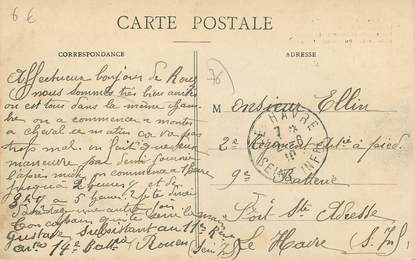 6 €
CARTE POSTALE
CORRESPONDANCE
ADRESSE
76
Affectueux bonjour de Rouen
nous sommes très bien arrivés
on est tous dans la même cham
bre on a commencé a monter
a cheval ce matin ca va pas
trop mal on fait qu'une
manœuvre par demi journée
l'après midi on commence a 1 heure
jusqu'à 2 heures et de
a 5 heures
une autre fois
Ton copain qui te serre la main
Gustave au 11e
14e Batt Rouen
Monsieur Ellin
2e Régiment à pied
9e Batterie
Fort Ste Adresse
Le Havre (S. Inf)
LE HAVRE
SEINE INF